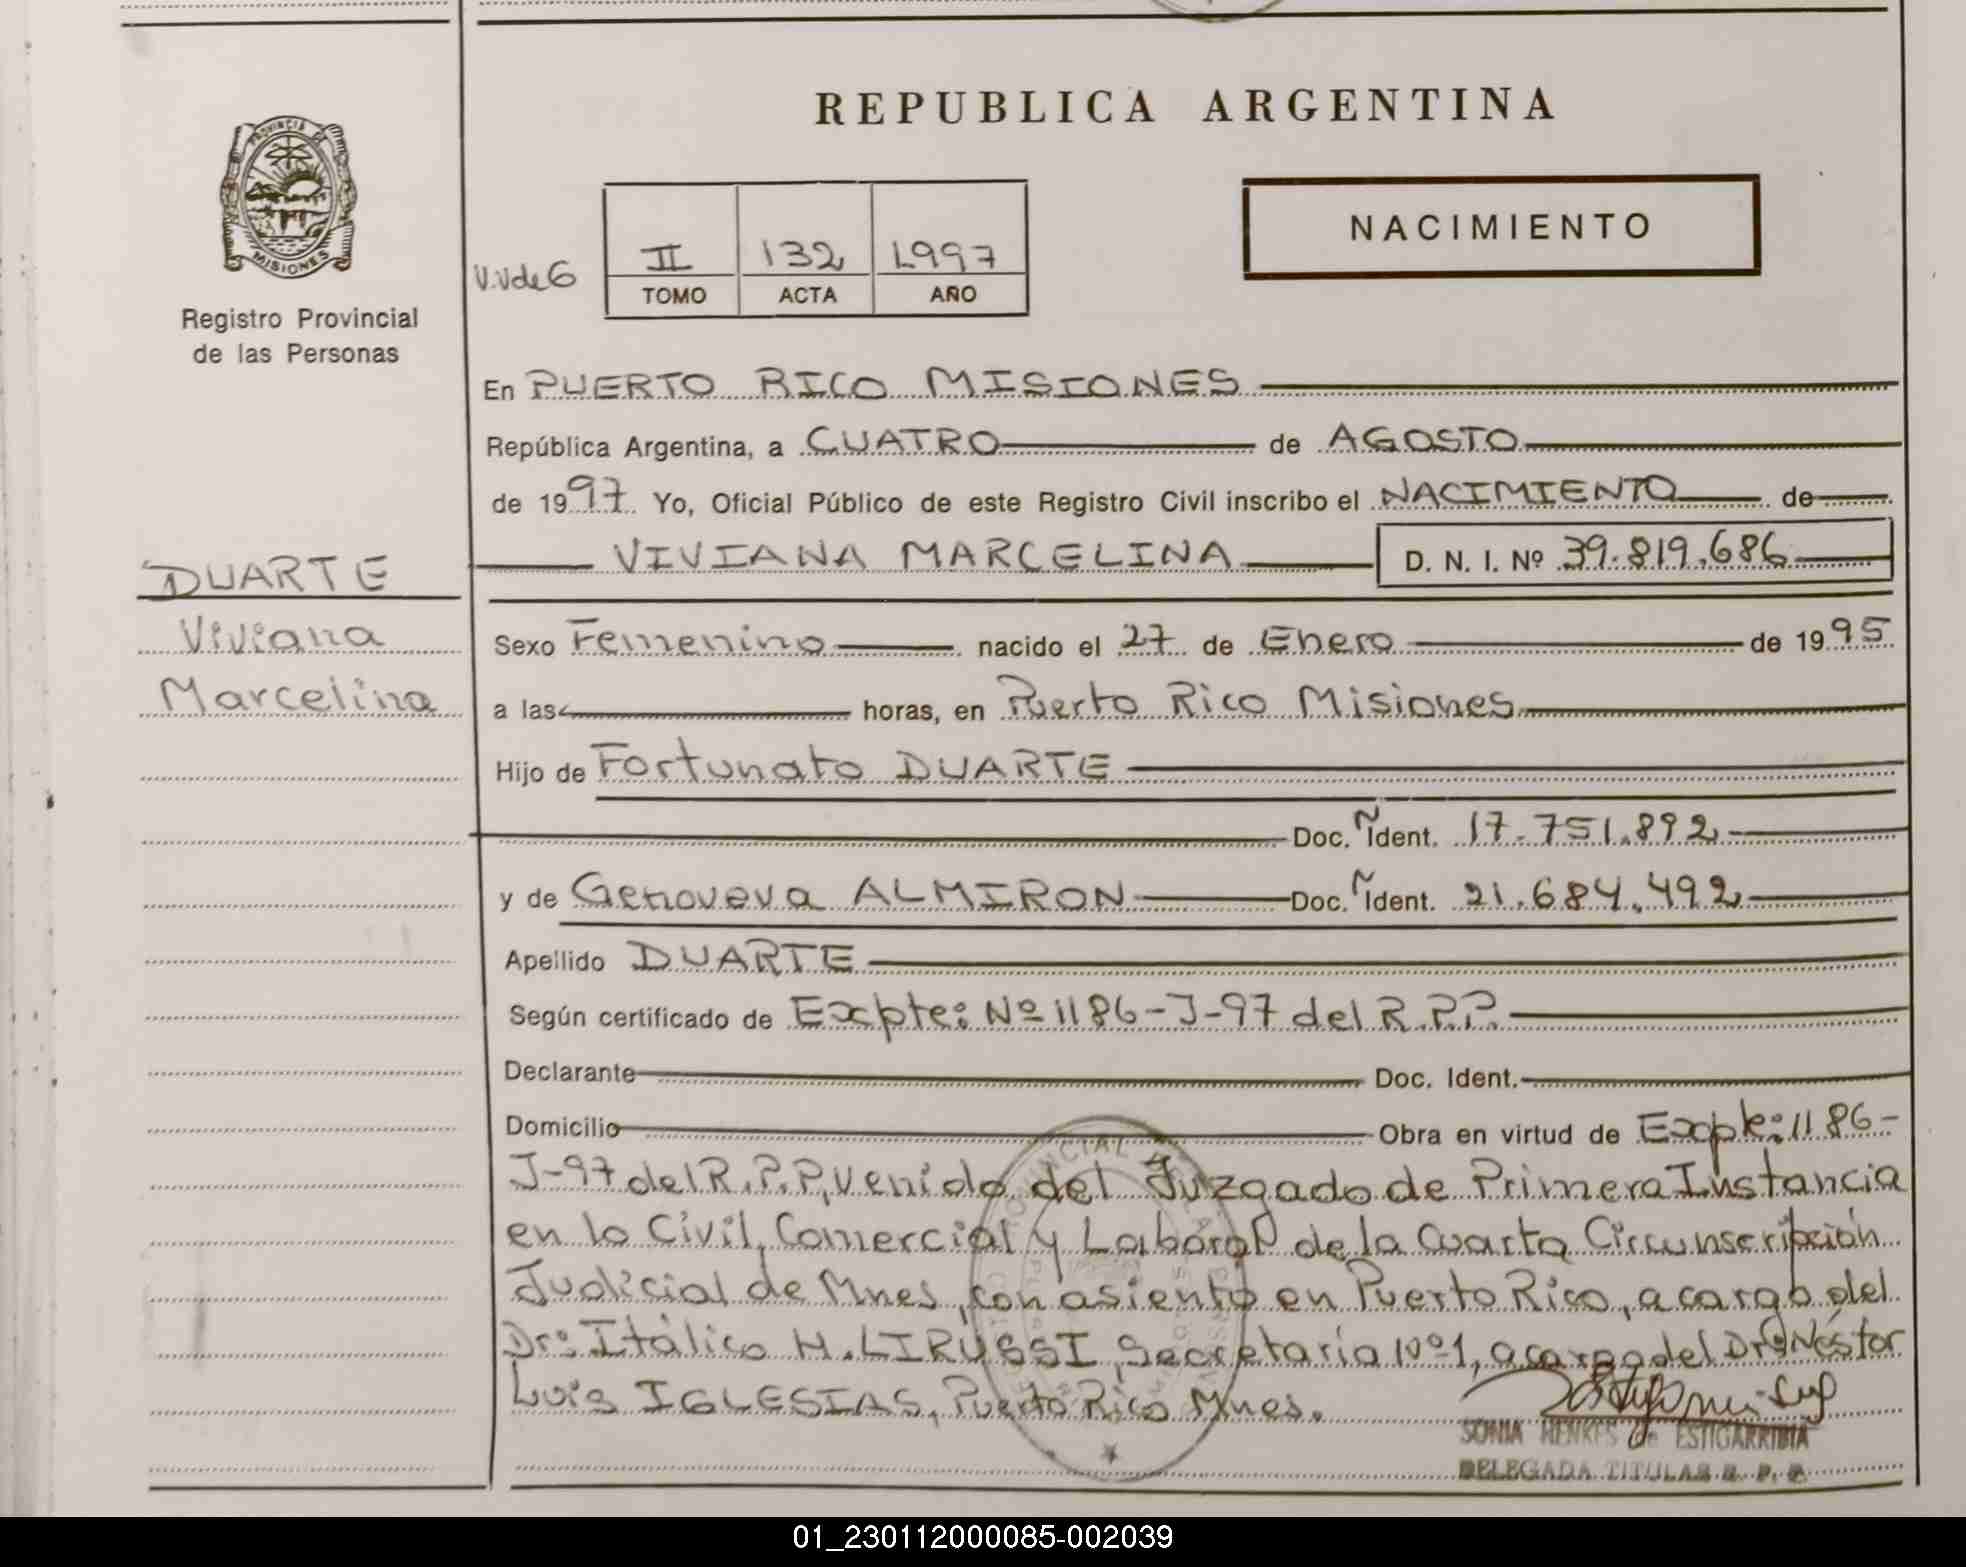 REPUBLICA ARGENTINA
PROVINCIA DE
MISIONES
Registro Provincial
de las Personas
NACIMIENTO
V.Vde6
II 132 1997
TOMO ACTA AÑO
En PUERTO RICO MISIONES
República Argentina, a CUATRO de AGOSTO
de 1997 Yo, Oficial Público de este Registro Civil inscribo el NACIMIENTO de
VIVIANA MARCELINA D. N. I. Nº 39.819.686
DUARTE
Viviana
Marcelina
Sexo Femenino nacido el 27 de Enero de 1995
a las horas, en Puerto Rico Misiones
Hijo de Fortunato DUARTE
Doc. Ñ Ident. 17.751.892
y de Genoveva ALMIRON Doc. Ñ Ident. 21.684.492
Apellido DUARTE
Según certificado de Expte: Nº 1186-J-97 del R.P.P.
Declarante Doc. Ident.
Domicilio Obra en virtud de Expte: 1186-
J-97 del R.P.P, venido del Juzgado de Primera Instancia
en lo Civil, Comercial y Laboral de la Cuarta Circunscripción
Judicial de Mnes, con asiento en Puerto Rico, a cargo del
Dr: Itálico H. LIRUSSI, Secretaría Nº1, a cargo del Dr: Néstor
Luis IGLESIAS, Puerto Rico Mnes.
SONIA HENKES de ESTIGARRIBIA
DELEGADA TITULAR R. P. P.
01_230112000085-002039